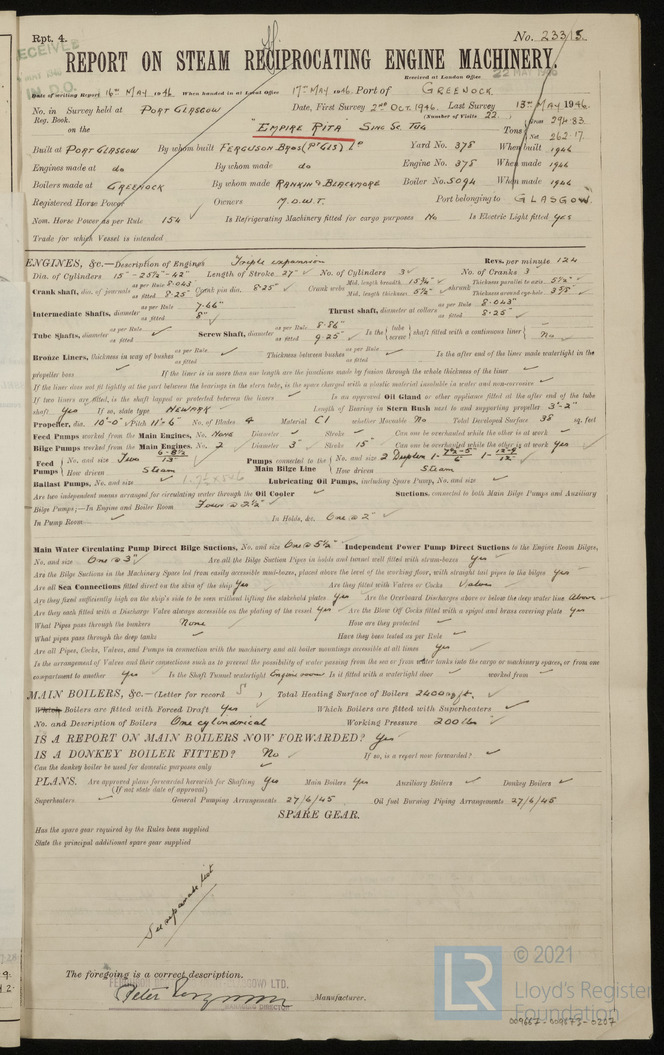 Rpt. 4.
No. 23315.
RECEIVED
IN D.O.
REPORT ON STEAM RECIPROCATING ENGINE MACHINERY.
Received at London Office 22 MAY 1946
Date of writing Report 16th MAY 1946 When handed in at Local Office 17th MAY 1946. Port of GREENOCK
No. in Survey held at PORT GLASGOW Date, First Survey 2nd OCT. 1946. Last Survey 13th MAY 1946.
Reg. Book. (Number of Visits 22.)
on the "EMPIRE RITA" SING SC. TUG Tons Gross 294.83. Net 262.17
Built at PORT GLASGOW By whom built FERGUSON BROS (PT GLS) Ld Yard No. 375 When built 1946
Engines made at do By whom made do Engine No. 375 When made 1946
Boilers made at GREENOCK By whom made RANKIN & BLACKMORE Boiler No. 5094 When made 1946
Registered Horse Power Owners M.O.W.T. Port belonging to GLASGOW
Nom. Horse Power as per Rule 154 Is Refrigerating Machinery fitted for cargo purposes No Is Electric Light fitted yes
Trade for which Vessel is intended
ENGINES, &c.—Description of Engines Triple expansion Revs. per minute 124
Dia. of Cylinders 15"-25½"-42" Length of Stroke 27" No. of Cylinders 3 No. of Cranks 3
Crank shaft, dia. of journals as per Rule 8.043 as fitted 8.25" Crank pin dia. 8.25" Crank webs Mid. length breadth 15¾" Mid. length thickness 5½" shrunk Thickness parallel to axis 5½" Thickness around eyehole 3⅝"
Intermediate Shafts, diameter as per Rule 7.66" as fitted 8" Thrust shaft, diameter at collars as per Rule 8.043" as fitted 8.25"
Tube Shafts, diameter as per Rule as fitted Screw Shaft, diameter as per Rule 8.86" as fitted 9.25" Is the tube screw shaft fitted with a continuous liner No
Bronze Liners, thickness in way of bushes as per Rule as fitted Thickness between bushes as per Rule as fitted Is the after end of the liner made watertight in the
propeller boss If the liner is in more than one length are the junctions made by fusion through the whole thickness of the liner
If the liner does not fit tightly at the part between the bearings in the stern tube, is the space charged with a plastic material insoluble in water and non-corrosive
If two liners are fitted, is the shaft lapped or protected between the liners Is an approved Oil Gland or other appliance fitted at the after end of the tube
shaft Yes If so, state type NEWARK Length of Bearing in Stern Bush next to and supporting propeller 3'-2"
Propeller, dia. 10'-0" Pitch 11'-6" No. of Blades 4 Material CI whether Moveable No Total Developed Surface 38 sq. feet
Feed Pumps worked from the Main Engines, No. NONE Diameter Stroke Can one be overhauled while the other is at work
Bilge Pumps worked from the Main Engines, No. 2 Diameter 3" Stroke 15" Can one be overhauled while the other is at work Yes
Feed Pumps No. and size Two 6-8½ / 13" How driven Steam Pumps connected to the Main Bilge Line No. and size 2 Duplex How driven Steam
Ballast Pumps, No. and size Lubricating Oil Pumps, including Spare Pump, No. and size
Are two independent means arranged for circulating water through the Oil Cooler Suctions, connected to both Main Bilge Pumps and Auxiliary
Bilge Pumps;—In Engine and Boiler Room Four @ 2½"
In Pump Room In Holds, &c. One @ 2"
Main Water Circulating Pump Direct Bilge Suctions, No. and size One @ 5½" Independent Power Pump Direct Suctions to the Engine Room Bilges,
No. and size One @ 3" Are all the Bilge Suction Pipes in holds and tunnel well fitted with strum-boxes Yes
Are the Bilge Suctions in the Machinery Space led from easily accessible mud-boxes, placed above the level of the working floor, with straight tail pipes to the bilges Yes
Are all Sea Connections fitted direct on the skin of the ship Yes Are they fitted with Valves or Cocks Valves
Are they fixed sufficiently high on the ship's side to be seen without lifting the stokehold plates Yes Are the Overboard Discharges above or below the deep water line Above
Are they each fitted with a Discharge Valve always accessible on the plating of the vessel Yes Are the Blow Off Cocks fitted with a spigot and brass covering plate Yes
What Pipes pass through the bunkers None How are they protected
What pipes pass through the deep tanks Have they been tested as per Rule
Are all Pipes, Cocks, Valves, and Pumps in connection with the machinery and all boiler mountings accessible at all times Yes
Is the arrangement of Valves and their connections such as to prevent the possibility of water passing from the sea or from water tanks into the cargo or machinery spaces, or from one
compartment to another Yes Is the Shaft Tunnel watertight Engine room Is it fitted with a watertight door worked from
MAIN BOILERS, &c.—(Letter for record S) Total Heating Surface of Boilers 2400 sq ft.
Which Boilers are fitted with Forced Draft Yes Which Boilers are fitted with Superheaters
No. and Description of Boilers One cylindrical Working Pressure 200 lbs
IS A REPORT ON MAIN BOILERS NOW FORWARDED? Yes
IS A DONKEY BOILER FITTED? No If so, is a report now forwarded?
Can the donkey boiler be used for domestic purposes only
PLANS. Are approved plans forwarded herewith for Shafting Yes Main Boilers Yes Auxiliary Boilers Donkey Boilers
(If not state date of approval)
Superheaters General Pumping Arrangements 27/6/45 Oil fuel Burning Piping Arrangements 27/6/45
SPARE GEAR.
Has the spare gear required by the Rules been supplied
State the principal additional spare gear supplied
See separate list
The foregoing is a correct description.
Manufacturer.
© 2021
LR
Lloyd's Register
Foundation
009667-009673-0207